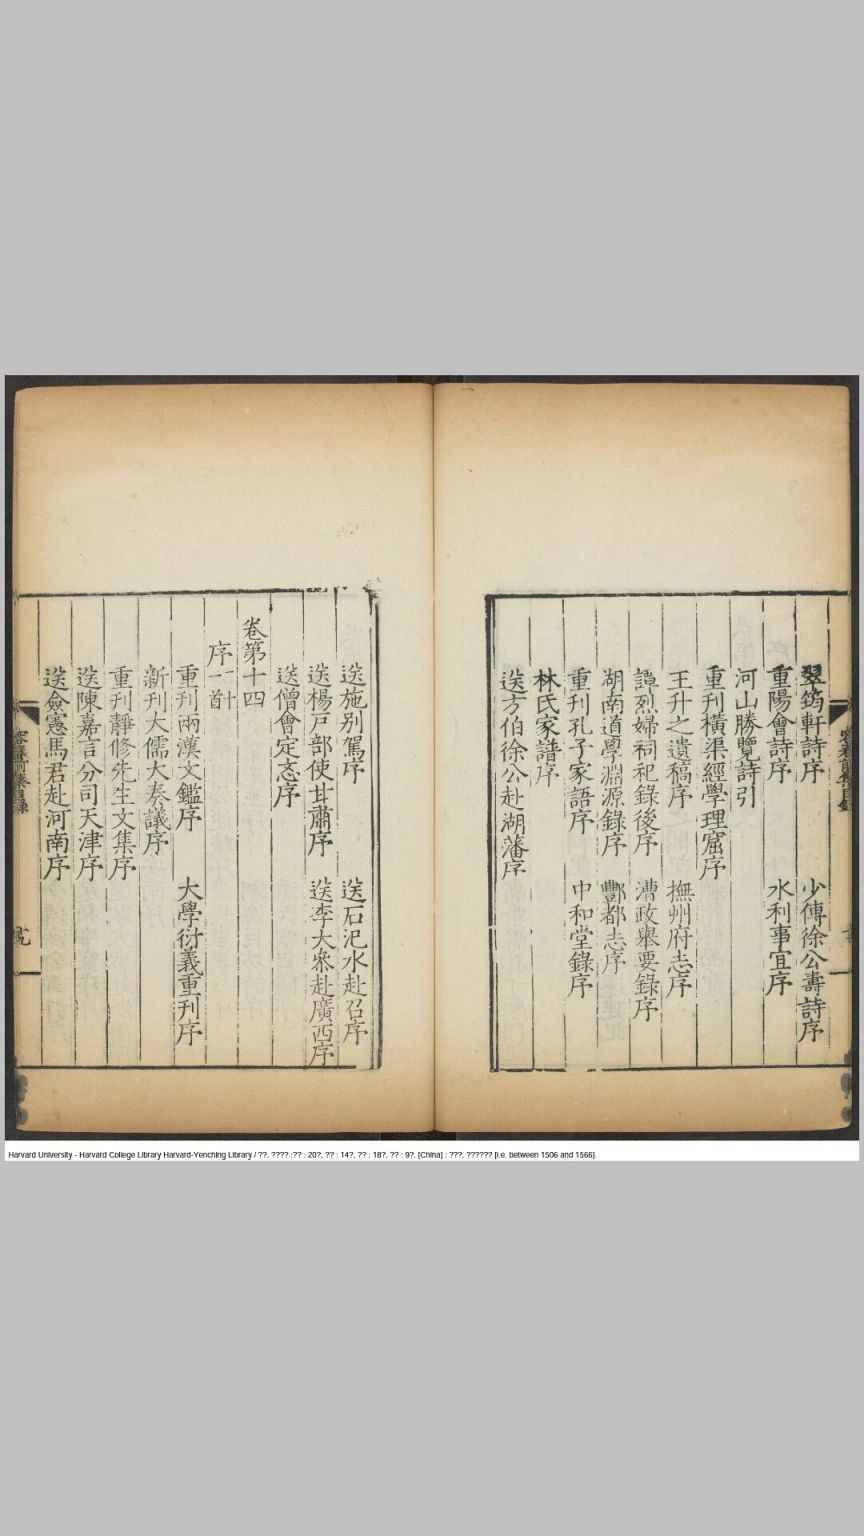 翠筠軒詩序　少傅徐公壽詩序
重陽會詩序　水利事宜序
河山勝覽詩引
重刊橫渠經學理窟序
王升之遺稿序　撫州府志序
譚烈婦祠祀錄後序　漕政舉要錄序
湖南道學淵源錄序　酆都志序
重刊孔子家語序　中和堂錄序
林氏家譜序
送方伯徐公赴湖藩序
送施别駕序　送石汜水赴召序
送楊戸部使甘肅序　送李大叅赴廣西序
送僧會定忞序
卷第十四
序二十一首
重刊兩漢文鑑序　大學衍義重刊序
新刊大儒大奏議序
重刊靜修先生文集序
送陳嘉言分司天津序
送僉憲馬君赴河南序
Harvard University - Harvard College Library Harvard-Yenching Library / ??. ???? :?? : 20?, ?? : 14?, ?? : 18?, ?? : 9?. [China] : ???, ?????? [i.e. between 1506 and 1566].